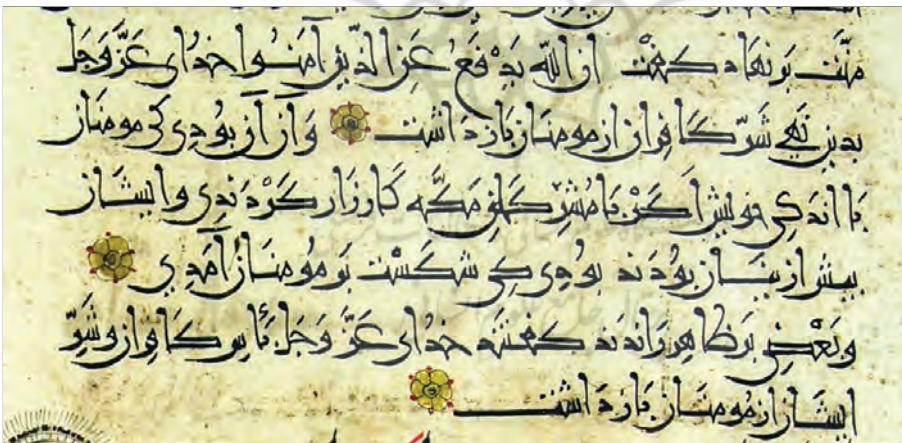 منّت بر نهاد گفت ان الله يدفع عن الذين امنوا خدای عزّ و جل
بدین نهی شرّ کافران از مومنان باز داشت و از آن بودی کی مومنان
با اندکی خویش اکر با مشرکان مکّه کارزار کردندی و ایشان
بیش ازیشان بودند بودی کی شکست بر مومنان آمدی
و بعضی بر ظاهر راندند گفتند خدای عزّ و جل باس کافران و شرّ
ایشان از مومنان باز داشت